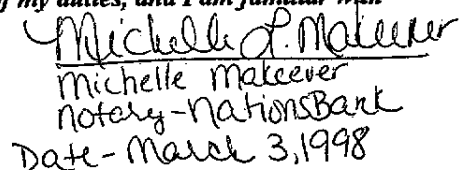 of my duties, and I am familiar with
Michelle L. Makeever
Michelle Makeever
Notary-NationsBank
Date-March 3, 1998